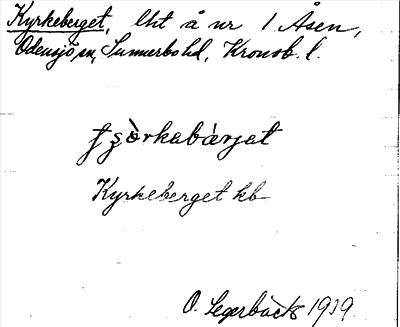 Kyrkeberget, lht å nr 1 Åsen,
Odensjö sn, Sunnerbo hd, Kronob. l.
Kyrkeberget kb
O. Segerbäck 1919.